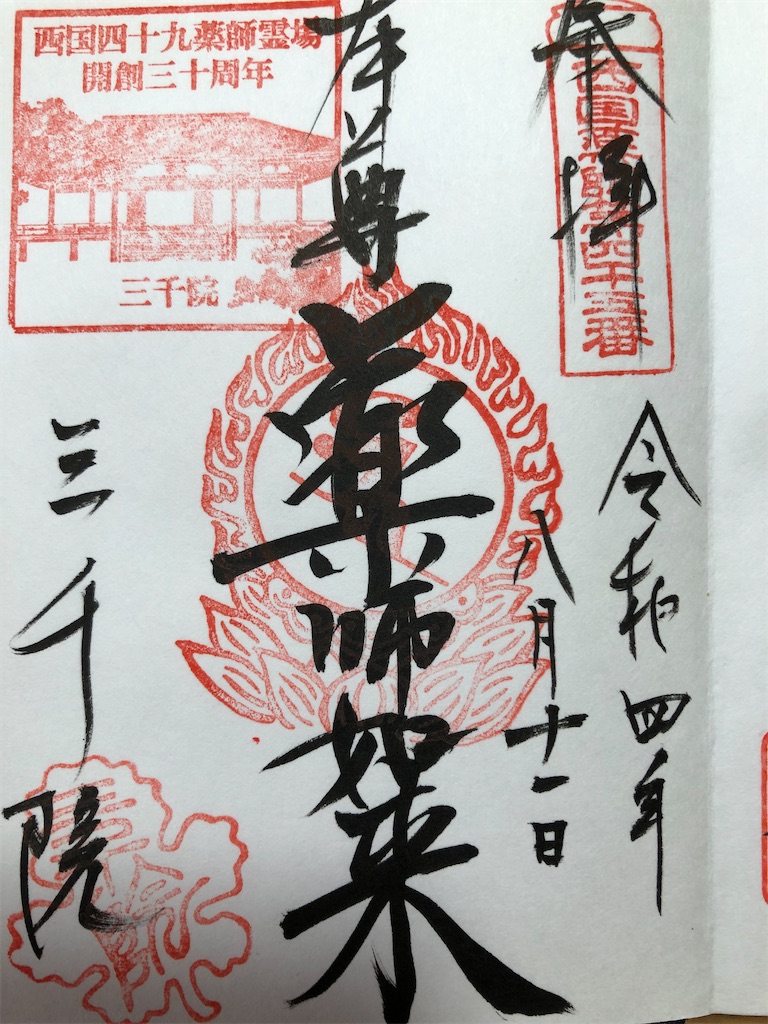 奉拝
西国薬師第四十五番
令和四年
八月十一日
本尊
薬師如来
西国四十九薬師霊場
開創三十周年
三千院
三千院